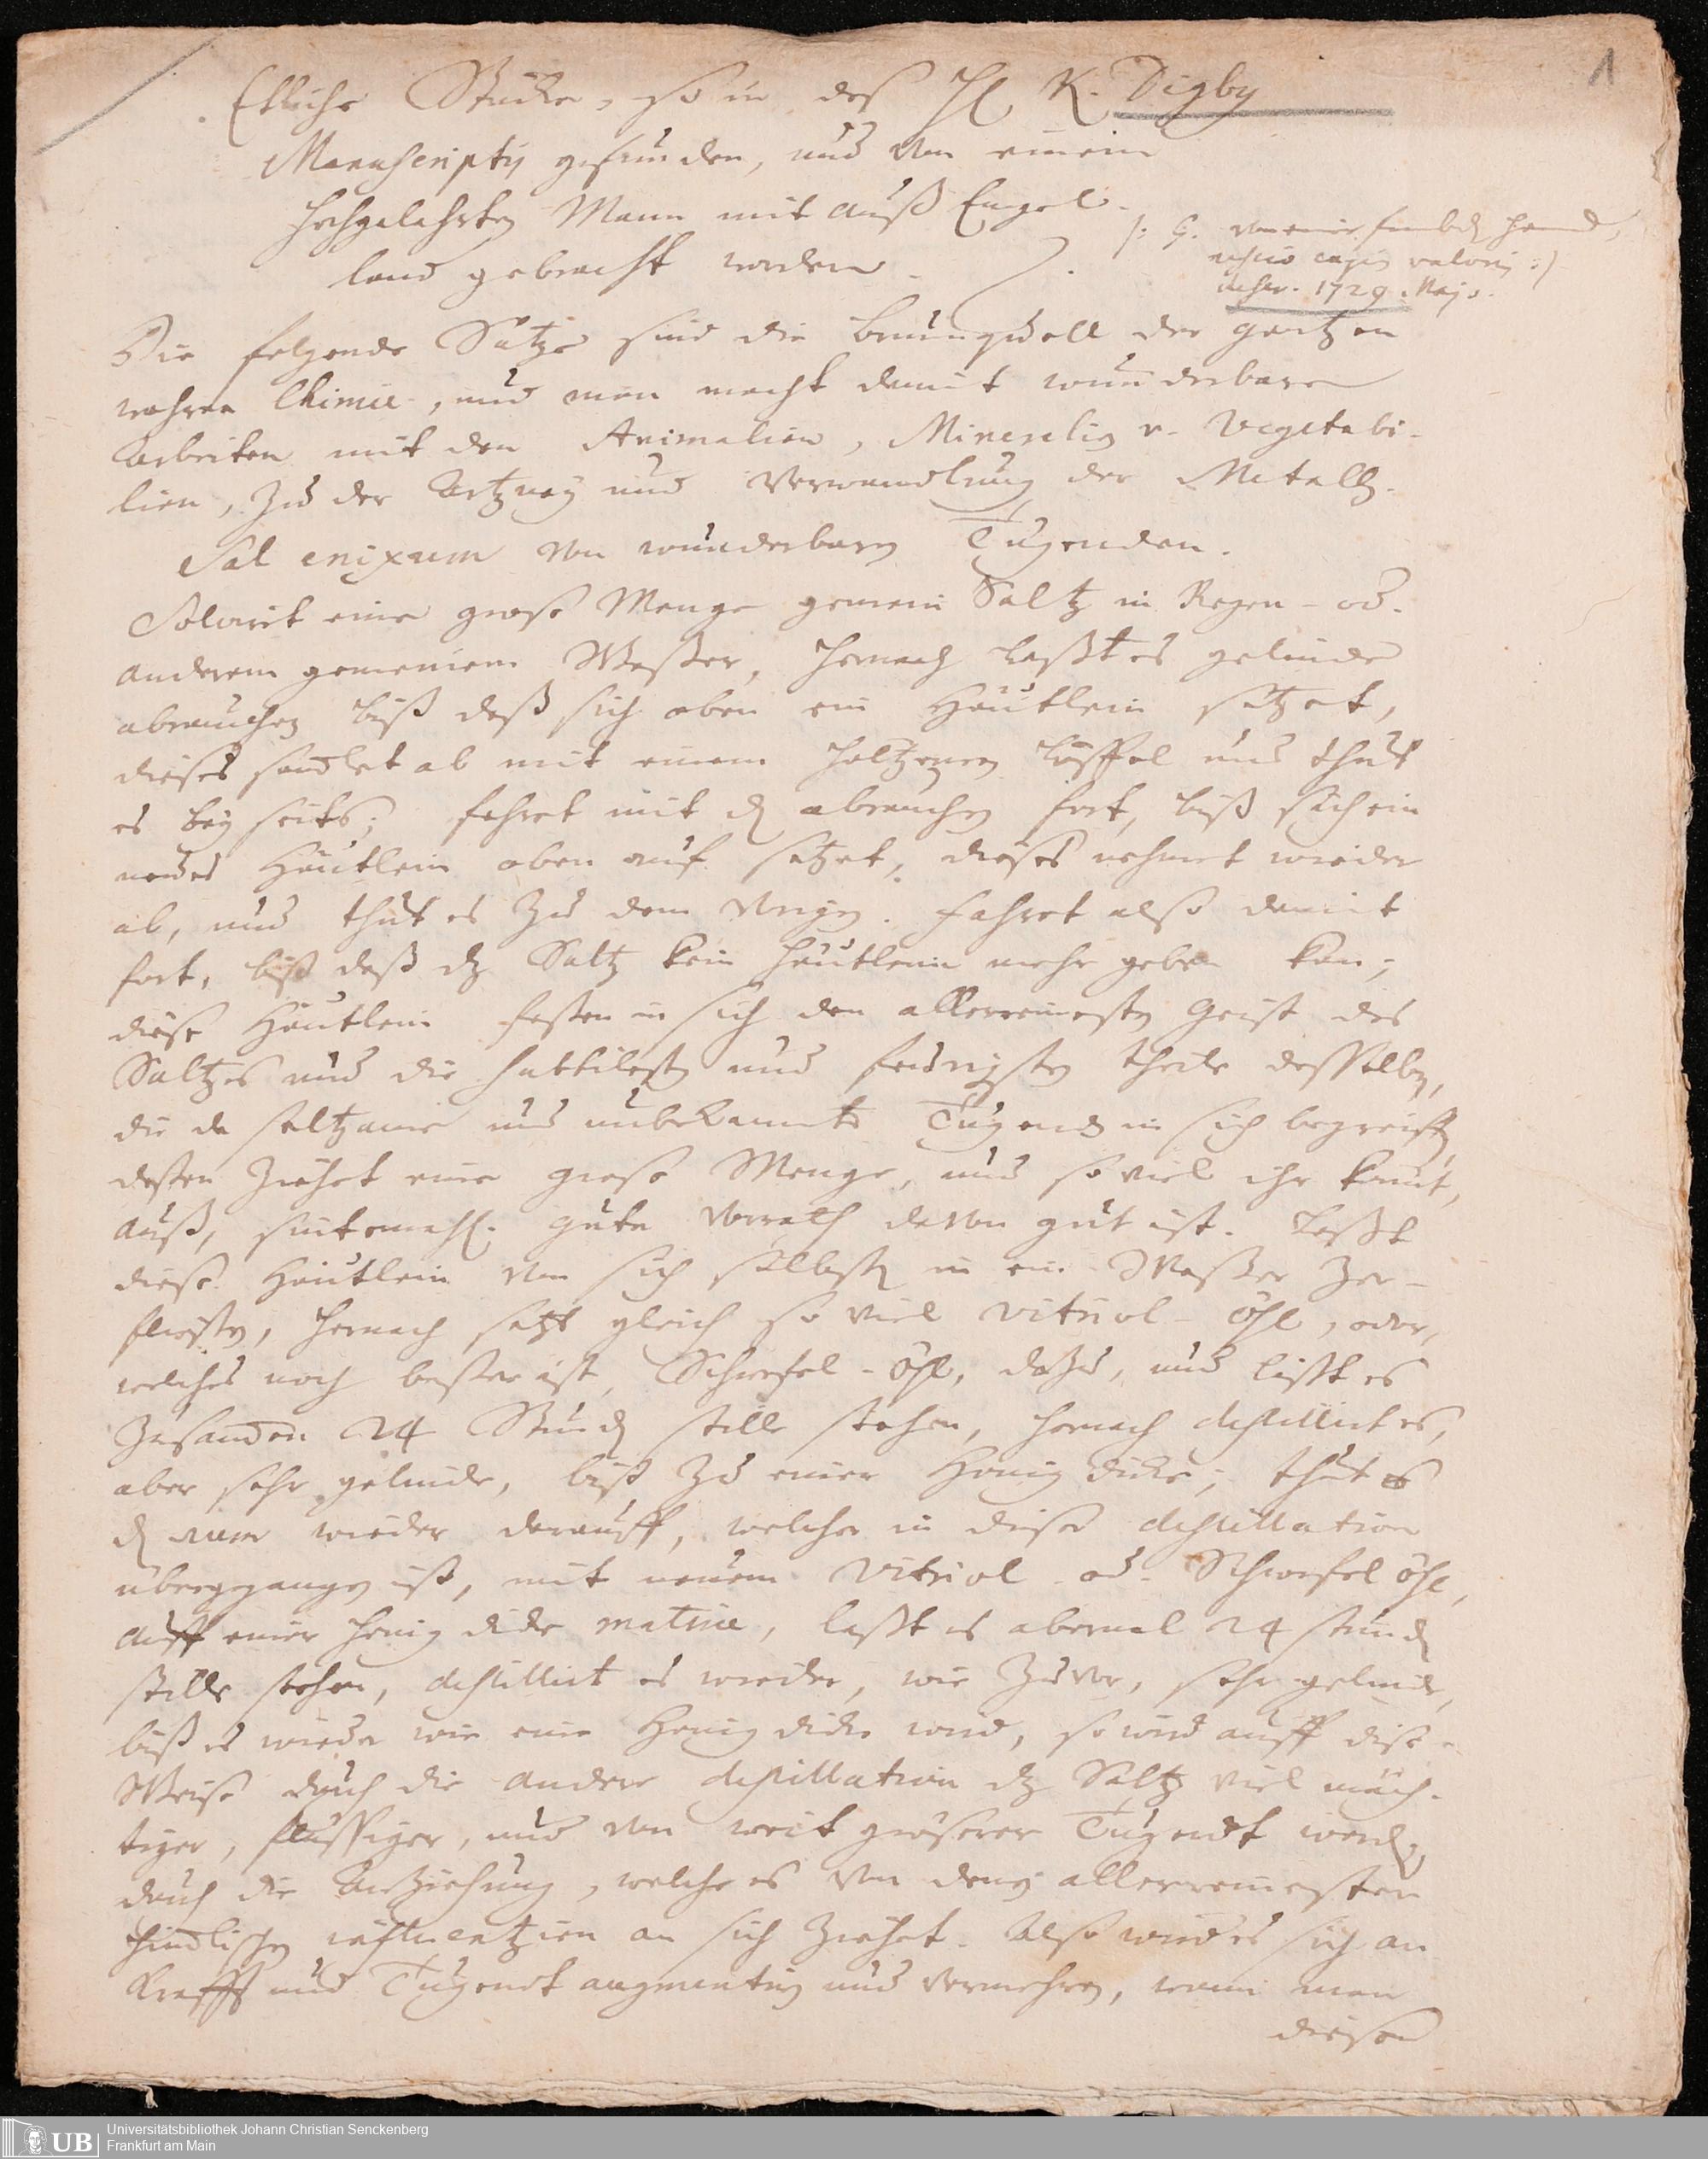 1
Etliche Stücke, so in des H. K. Digby
Manuscriptis gefunden, und von einem
hochgelehrten Mann mit auß Engel-
land gebracht worden.
/: G. von einer frembden Hand,
nescio cujus valoris :/
descr. 1729. Majo.
Die folgende Sätze sind die Brunnquell der gantzen
wahren Chimie, und man macht damit wunderbare
Arbeiten mit den Animalien, Mineralien u. Vegetabi-
lien, zu der Artzney und Verwandlung der Metallen.
Sal enixum von wunderbaren Tugenden.
Solvirt eine große Menge gemein Saltz in Regen- od.
anderem gemeinem Waßer, hernach laßt es gelinde
abrauchen biß daß sich oben ein Häutlein setzet,
dieses sondert ab mit einem höltzenen Löffel und thut
es bey seits; fahret mit dem abrauchen fort, biß sich ein
neues Häutlein oben auf setzet, dieses nehmet wieder
ab, und thut es zu dem vorigen. Fahret also damit
fort, biß daß das Saltz kein Häutlein mehr geben kan;
diese Häutlein faßen in sich den allerreinesten Geist des
Saltzes und die subtilesten und feurigsten theile desselben,
die da seltzame und unbekannte Tugenden in sich begreiffen,
deßen ziehet eine große Menge, und so viel ihr könnt,
auß, sintemahl guter Vorrath davon gut ist. Laßt
diese Häutlein von sich selbsten in ein Waßer zer-
fließen, hernach setzt gleich so viel Vitriol-Öhl, oder,
welches noch beßer ist, Schwefel-Öhl, dazu, und laßt es
zusammen 24 Stunden stille stehen, hernach destillirt es,
aber sehr gelinde, biß zu einer Honig dicke; thut
wieder darauff, welcher in dieser destillation
übergegangen ist, mit neuem Vitriol- od. Schwefel öhl,
auff einer Honig dicke matrie, laßt es abermal 24 stunden
stille stehen, destillirt es wieder, wie zuvor, sehr gelinde,
biß es wieder wie eine Honig dicke wird, so wird auff diese
Weise durch die andere destillation das Saltz viel mäch-
tiger, flüssiger, und von weit größerer Tugendt werden,
durch die Anziehung, welche es von denen allerreinesten
himmlischen influentzien an sich ziehet. Also wird es sich an
Krafft und Tugendt augmentiren und vermehren, wann man
diesen
Universitätsbibliothek Johann Christian Senckenberg
Frankfurt am Main
UB